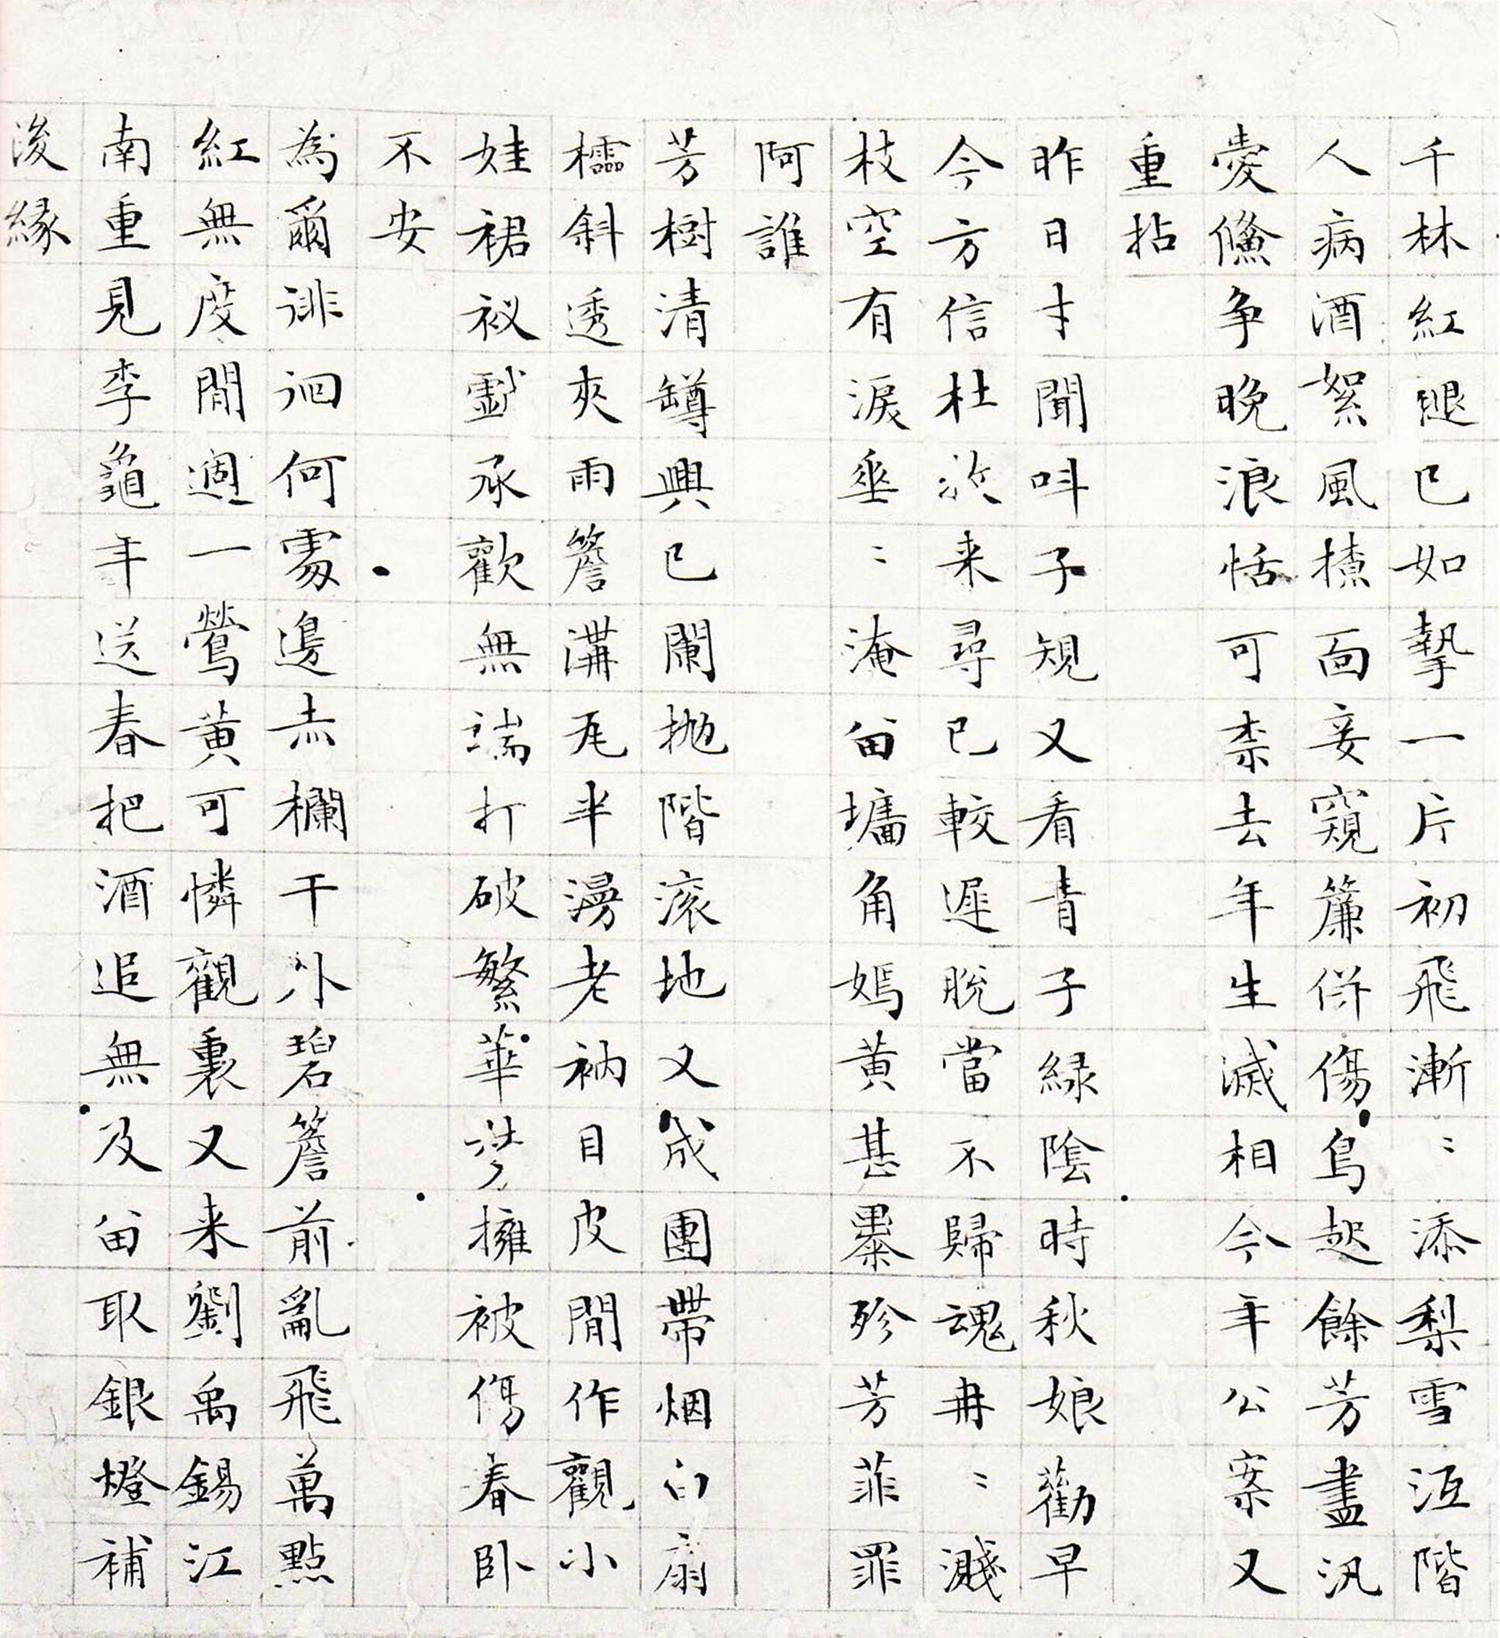 千林紅腿已如摰一片初飛漸〻添梨雪沍階
人病酒絮風㨗面妾窺簾併傷鳥起餘芳盡汎
愛儵争晚浪恬可柰去年生滅相今年公案又
重拈
昨日才聞叫子規又看青子緑陰時秋娘勸早
今方信杜於来尋已較遲脫當不歸魂冉〻濺
枝空有淚垂〻淹留墻角嫣黄甚暴殄芳菲罪
阿誰
芳樹清罇興已闌拋階滚地又成團帶烟白扇
櫺斜透夾雨簷溝瓦半漫老衲目皮閒作觀小
娃裙衩戲承歡無端打破繁華夢擁被傷春卧
不安
為爾徘徊何處邊赤欄干外碧簷前亂飛萬點
紅無度閒過一鶯黄可憐觀裏又来劉禹錫江
南重見李龜年送春把酒追無及留取銀橙補
浚緣